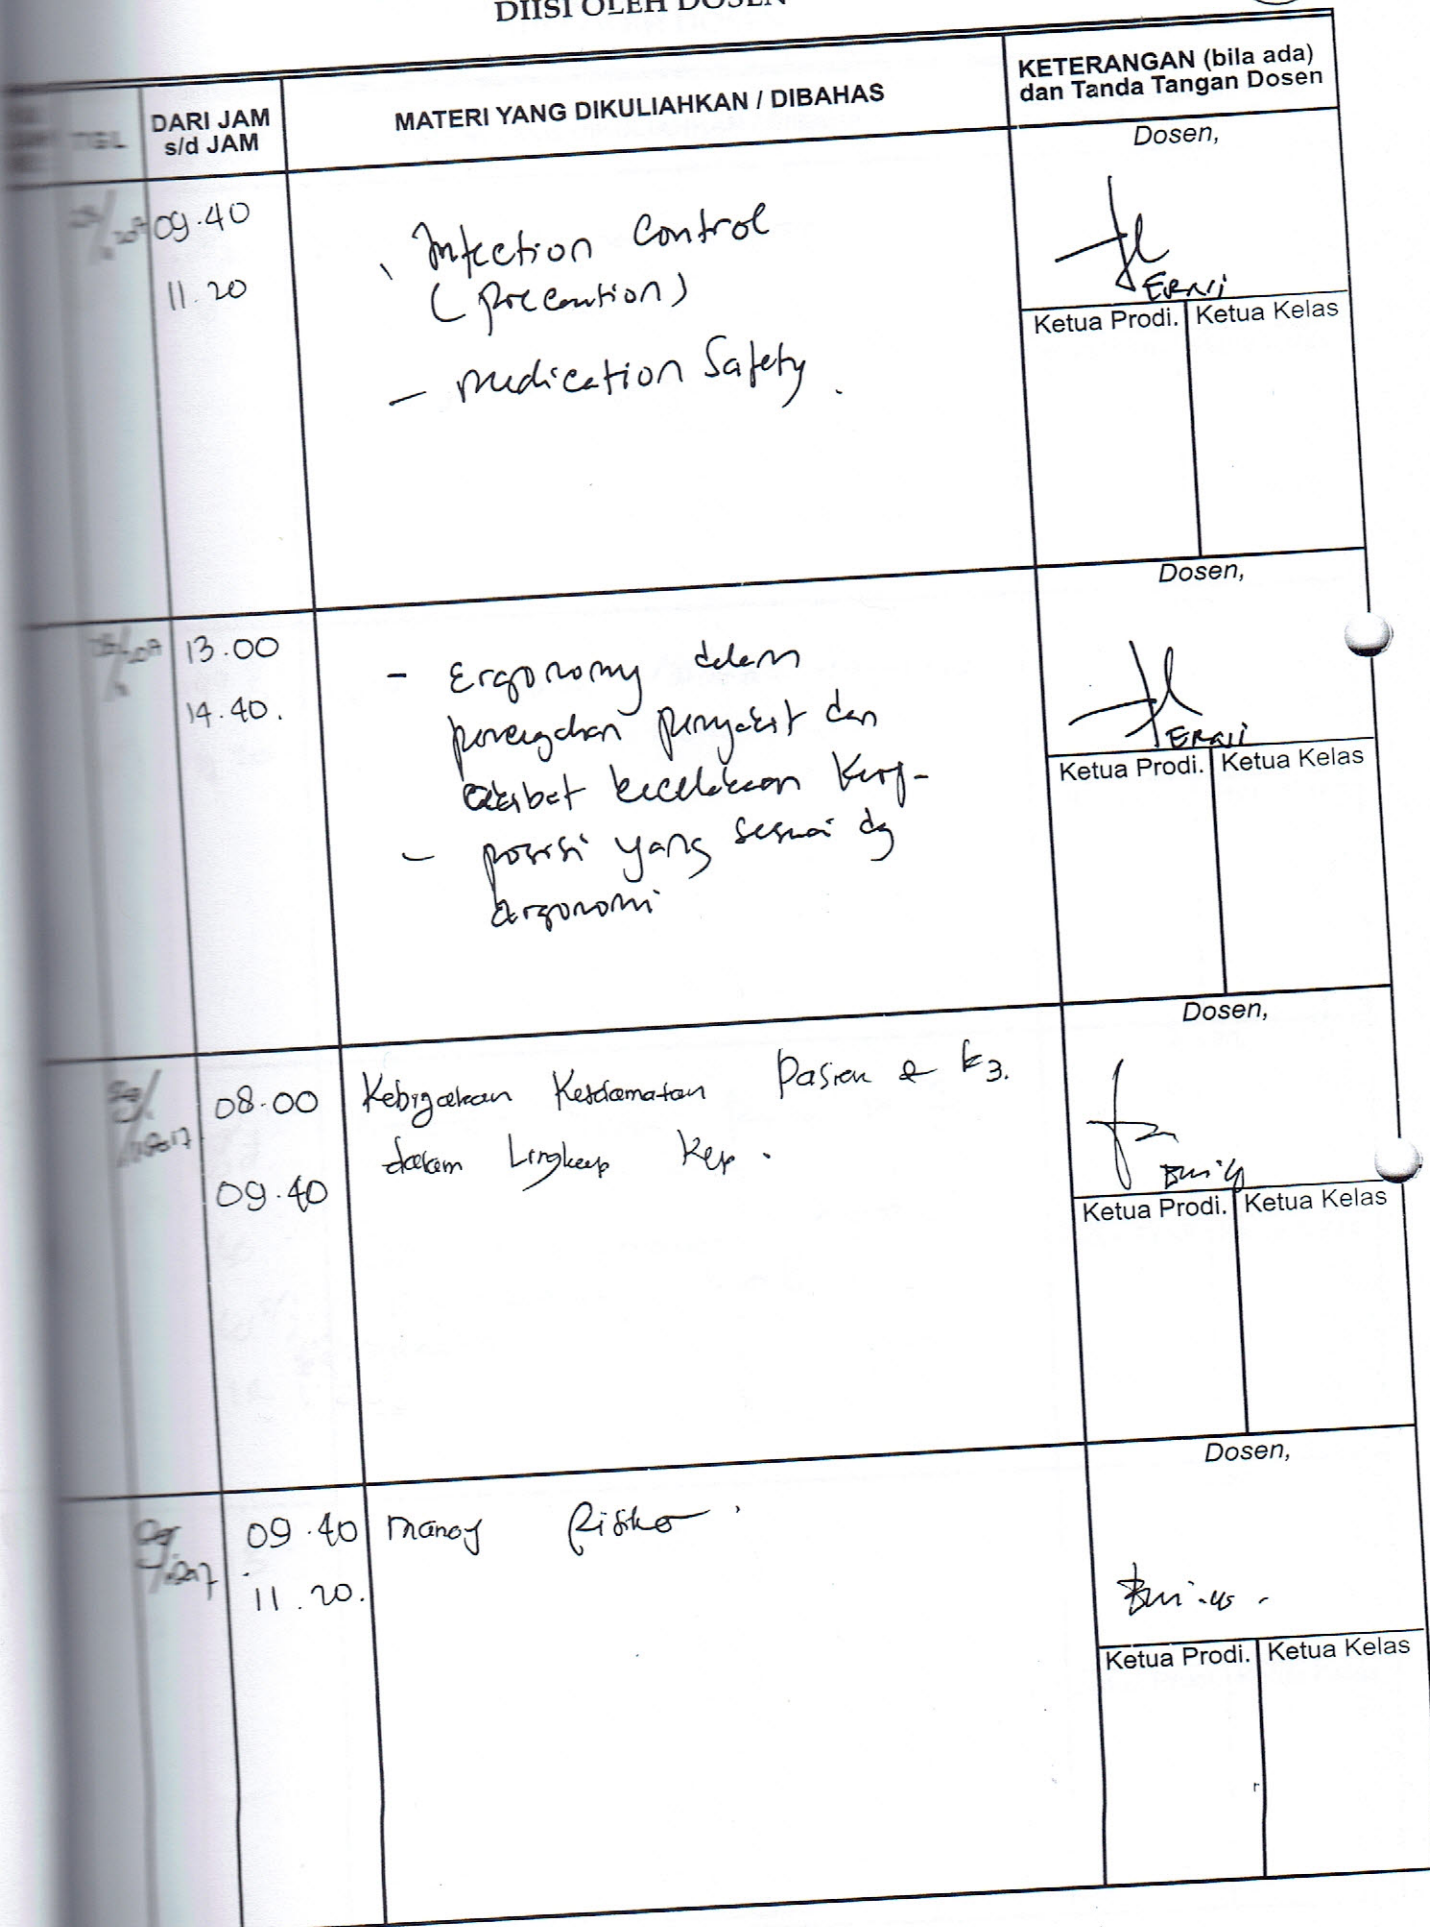 DIISI OLEH DOSEN
TGL
DARI JAM
s/d JAM
MATERI YANG DIKULIAHKAN / DIBAHAS
KETERANGAN (bila ada)
dan Tanda Tangan Dosen
09.40
11.20
Infection Control
(precaution)
- Medication Safety.
Dosen,
ERNI
Ketua Prodi. Ketua Kelas
13.00
14.40.
- Ergonomy dalam
penyakit dan
akibat kecelakaan
- posisi yang sesuai dg
ergonomi
Dosen,
ERNI
Ketua Prodi. Ketua Kelas
08.00
09.40
Kebijakan Keselamatan Pasien & K3.
dalam Lingkup Kep.
Dosen,
Ketua Prodi. Ketua Kelas
09.40
11.20.
Manaj Risiko.
Dosen,
Ketua Prodi. Ketua Kelas